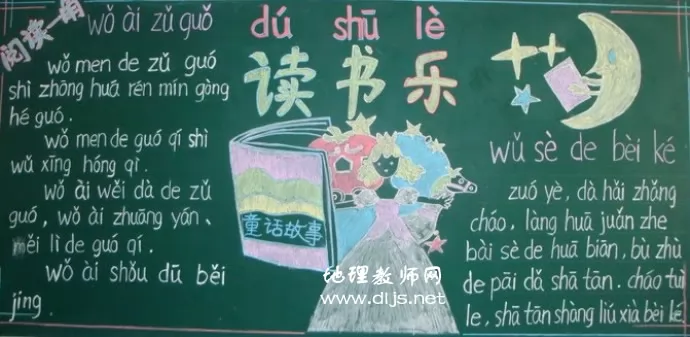 阅读一角
wǒ ài zǔ guó
wǒ men de zǔ guó
shì zhōng huá rén mín gòng
hé guó.
wǒ men de guó qí shì
wǔ xīng hóng qí.
wǒ ài wěi dà de zǔ
guó, wǒ ài zhuāng yán、
měi lì de guó qí.
wǒ ài shǒu dū běi
jīng.
dú shū lè
读书乐
童话故事
wǔ sè de bèi ké
zuó yè, dà hǎi zhǎng
cháo, làng huā juǎn zhe
bài sè de huā biān, bù zhù
de pāi dǎ shā tān. cháo tuì
le, shā tān shàng liú xià bèi ké
地理教师网
www.dljs.net